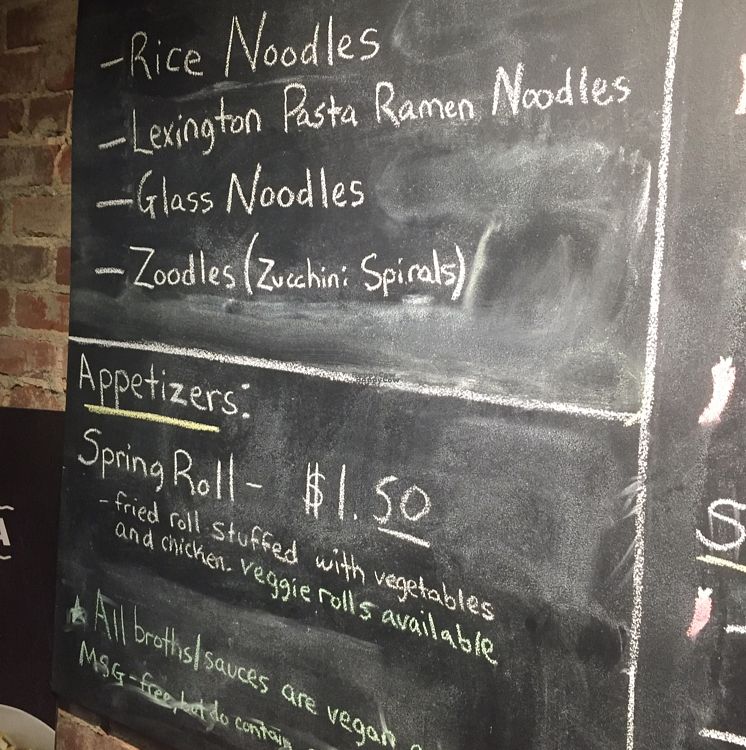 -Rice Noodles
-Lexington Pasta Ramen Noodles
-Glass Noodles
-Zoodles (Zucchini Spirals)
Appetizers:
Spring Roll - $1.50
-fried roll stuffed with vegetables
and chicken. veggie rolls available
☆ All broths/sauces are vegan
MSG-free, but do contain